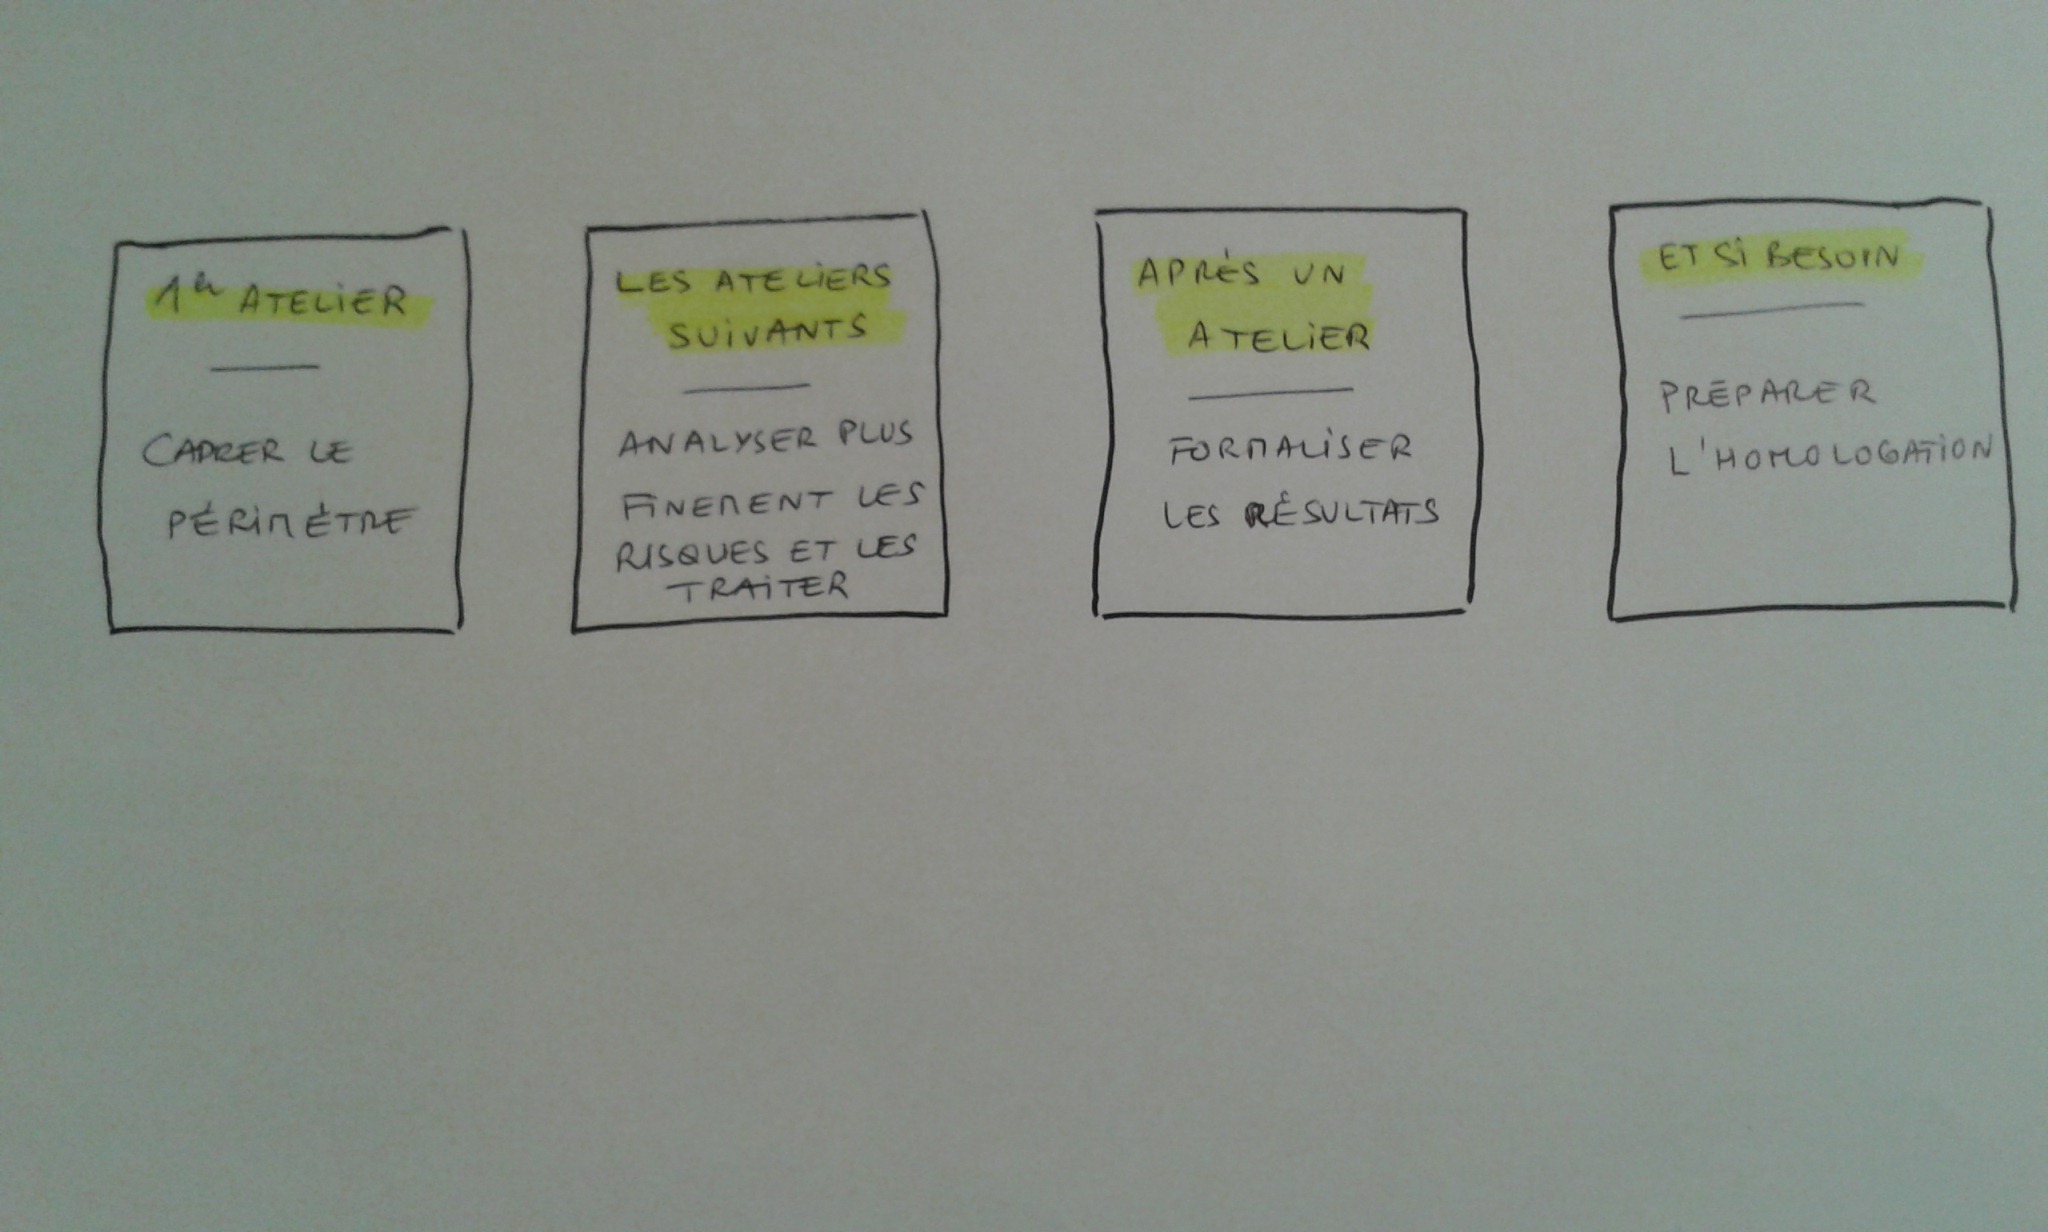 1er ATELIER
CADRER LE
PÉRIMÈTRE
LES ATELIERS
SUIVANTS
ANALYSER PLUS
FINEMENT LES
RISQUES ET LES
TRAITER
APRÈS UN
ATELIER
FORMALISER
LES RÉSULTATS
ET SI BESOIN
PRÉPARER
L'HOMOLOGATION